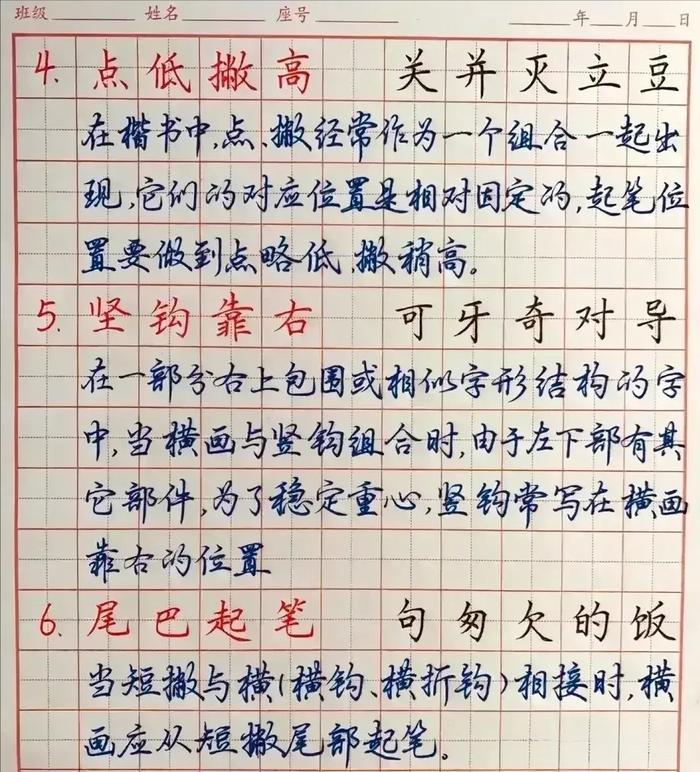 班级 姓名 座号 年 月 日
4. 点低撇高 关并灭立豆
在楷书中,点、撇经常作为一个组合一起出
现,它们的对应位置是相对固定的,起笔位
置要做到点略低,撇稍高。
5. 坚钩靠右 可牙奇对导
在一部分右上包围或相似字形结构的字
中,当横画与竖钩组合时,由于左下部有其
它部件,为了稳定重心,竖钩常写在横画
靠右的位置
6. 尾巴起笔 句匆欠的饭
当短撇与横(横钩、横折钩)相接时,横
画应从短撇尾部起笔。